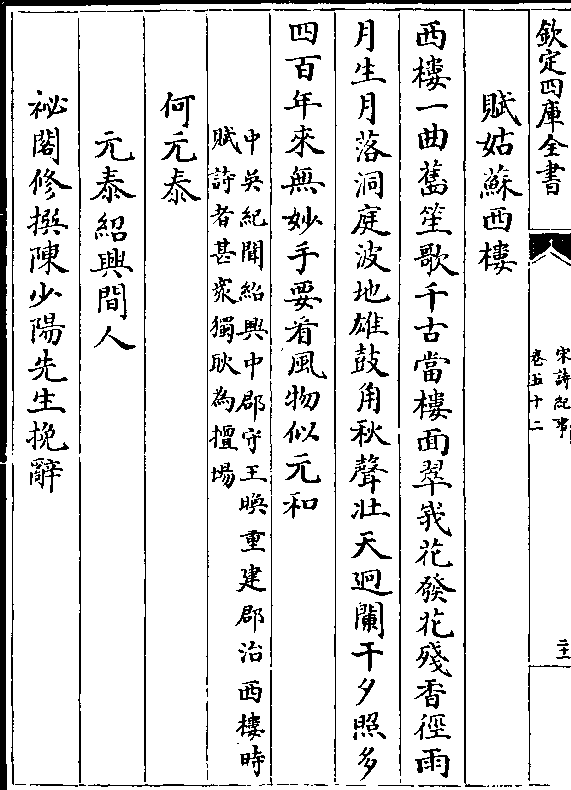 欽定四庫全書
宋詩紀事
卷五十二
二十一
賦姑蘇西樓
西樓一曲舊笙歌千古當樓面翠峩花發花殘香徑雨
月生月落洞庭波地雄鼓角秋聲壯天迥闌干夕照多
四百年來無妙手要看風物似元和
中吳紀聞紹興中郡守王㬇重建郡治西樓時
賦詩者甚衆獨耿為擅場
何元泰
元泰紹興間人
祕閣修撰陳少陽先生挽辭